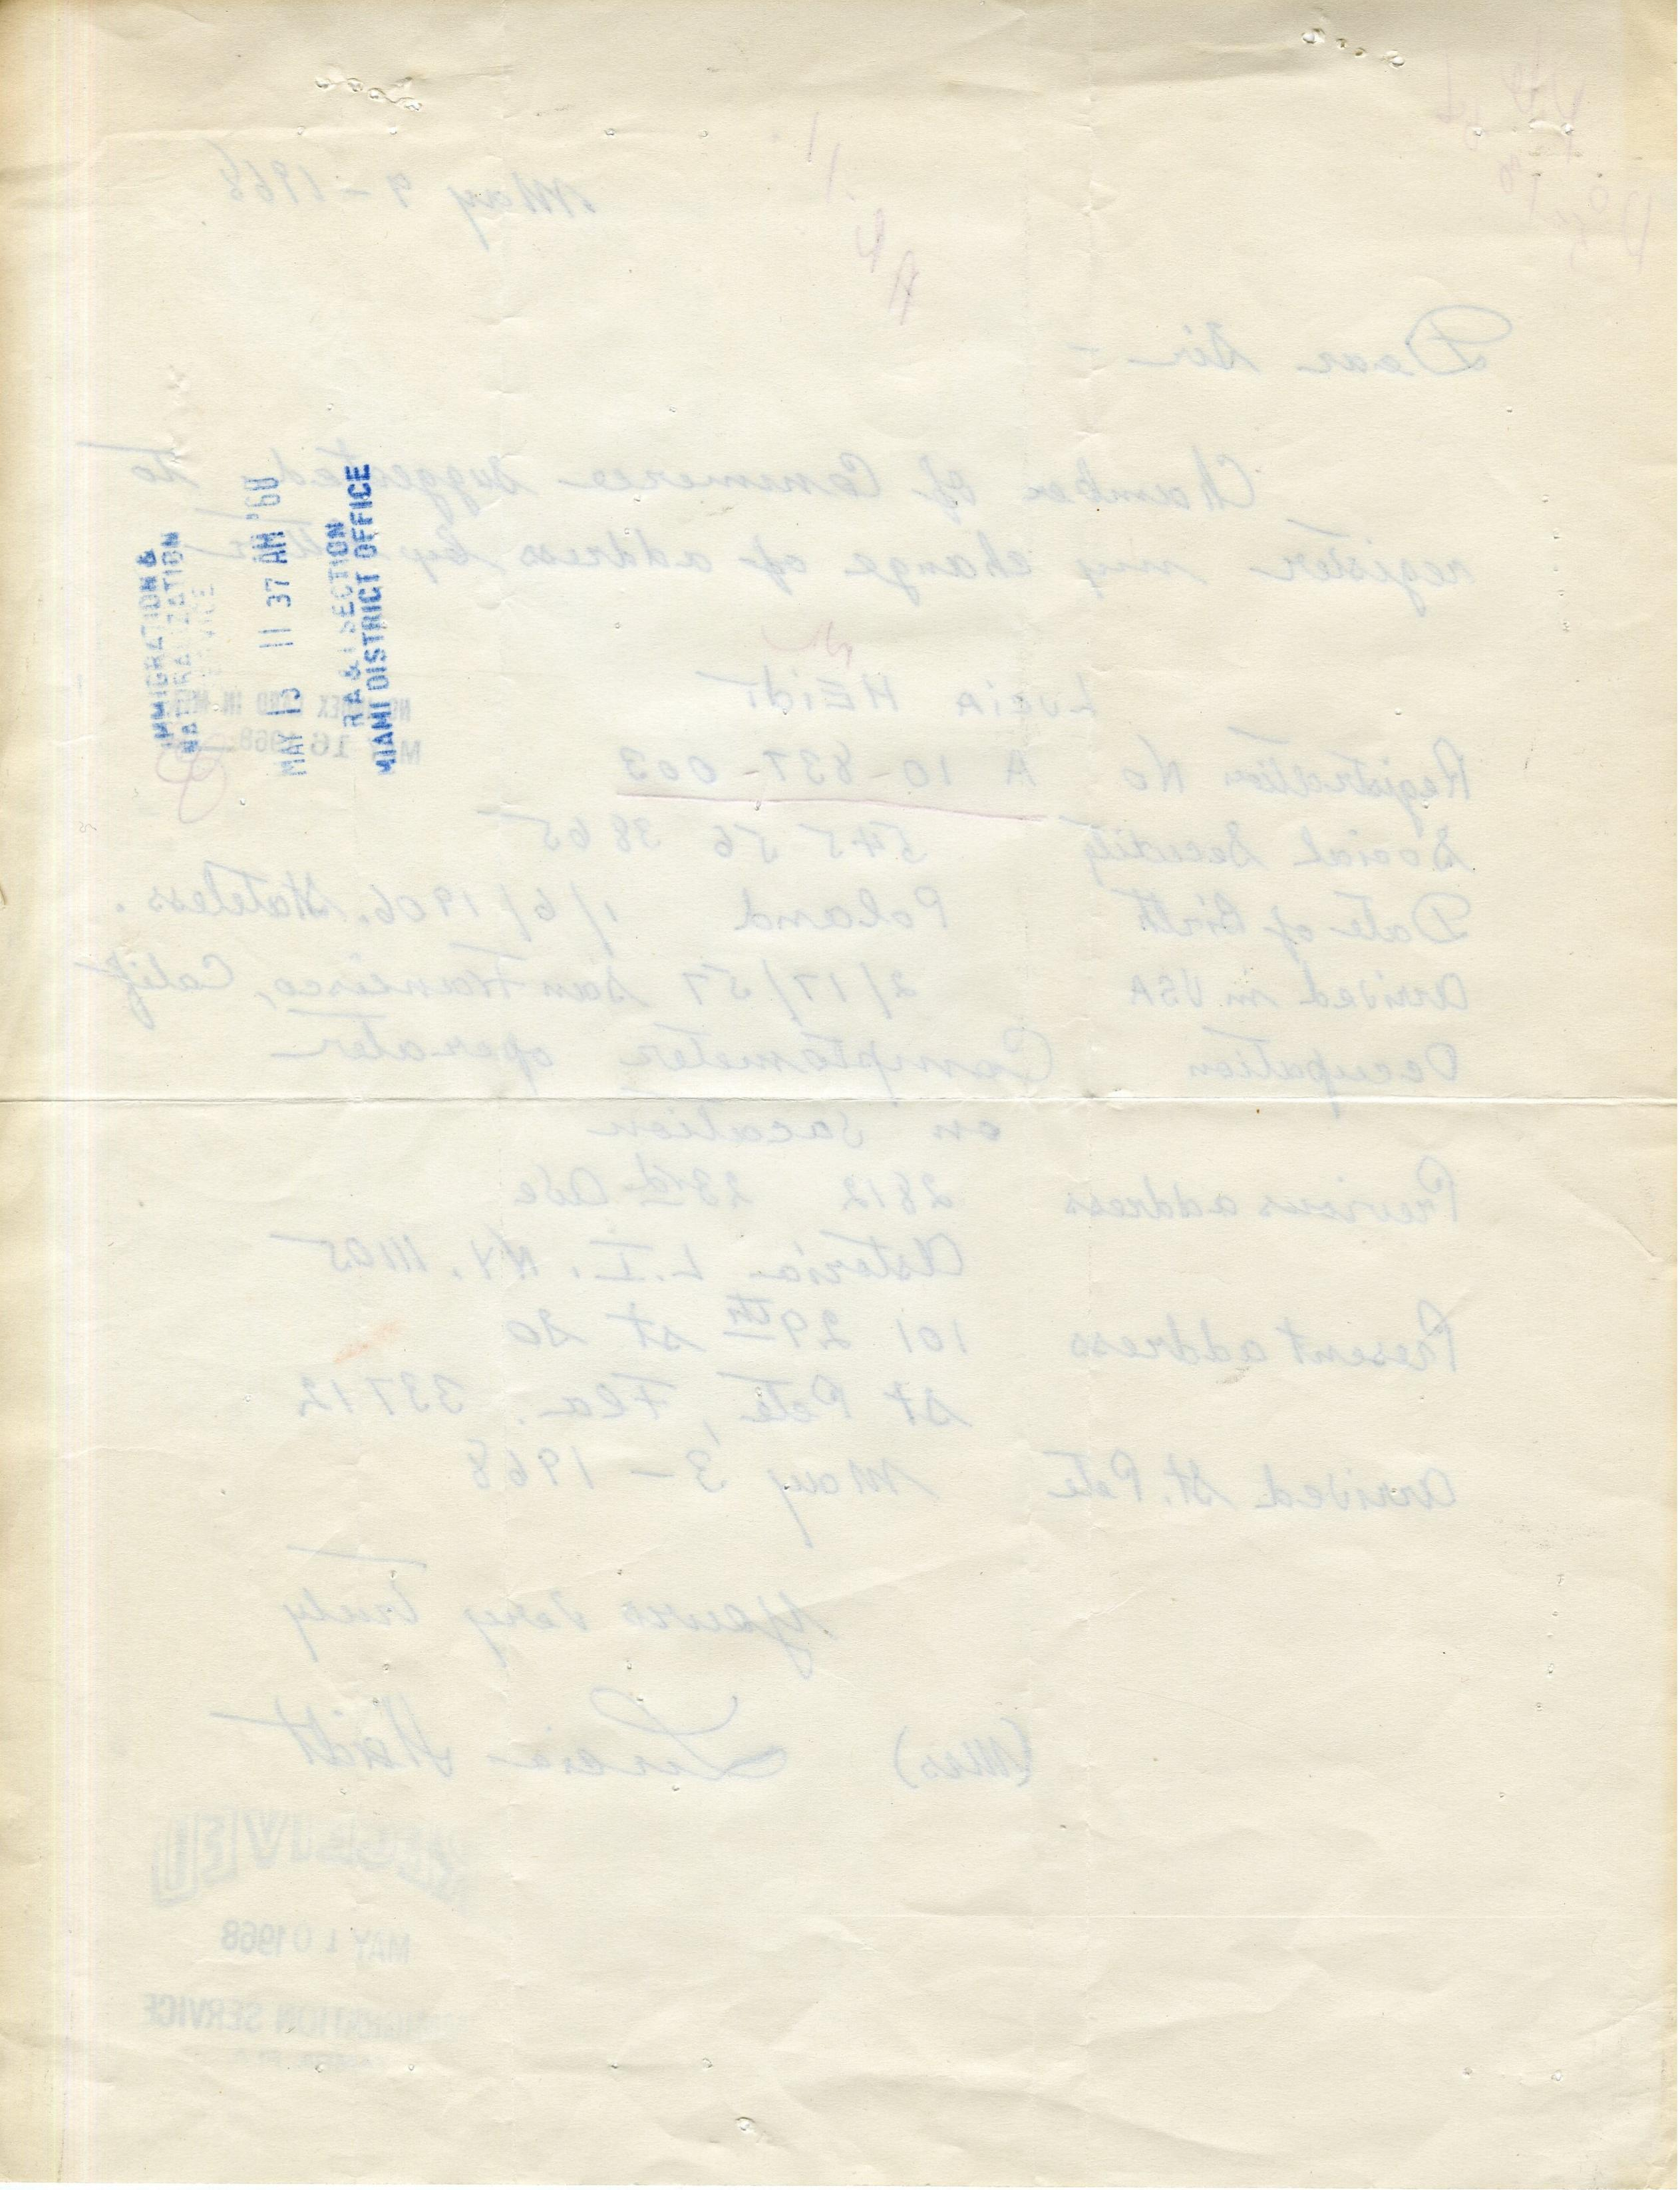 May 9 - 1968
Dear Sir -
Chamber of Commerce suggested to
register my change of address by
LUCIA HEIDT
Registration No A 10-837-003
Social Security 545 56 3865
Date of Birth Poland 1/6/1906. Stateless.
arrived in USA 2/17/57 San Francisco, Calif
Occupation Comptometer operator
on vacation
Previous address 2812 23rd Ave
Astoria L.I. NY. 11105
Present address 101 29th St So
St Pete, Fla. 33712
arrived St. Pete May 3 - 1968
Yours very truly
(Mrs) Lucia Heidt
RECEIVED
MAY 10 1968
IMMIGRATION SERVICE
IMMIGRATION &
NATURALIZATION
SERVICE
MAY 13 11 37 AM '68
MIAMI DISTRICT OFFICE
NO INDEX CARD IN
MAY 16 1968